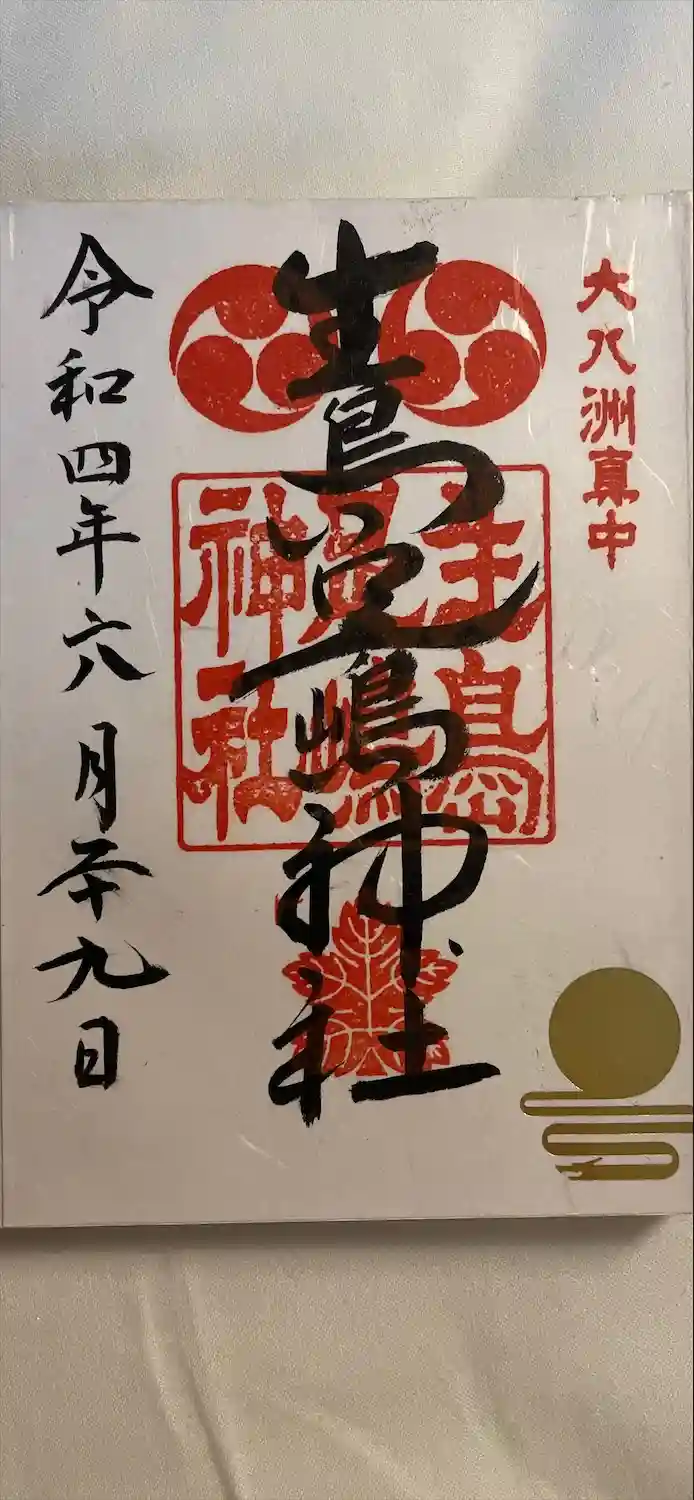 大八洲真中
生島足嶋神社
生島
足嶋
神社
令和四年六月二十九日